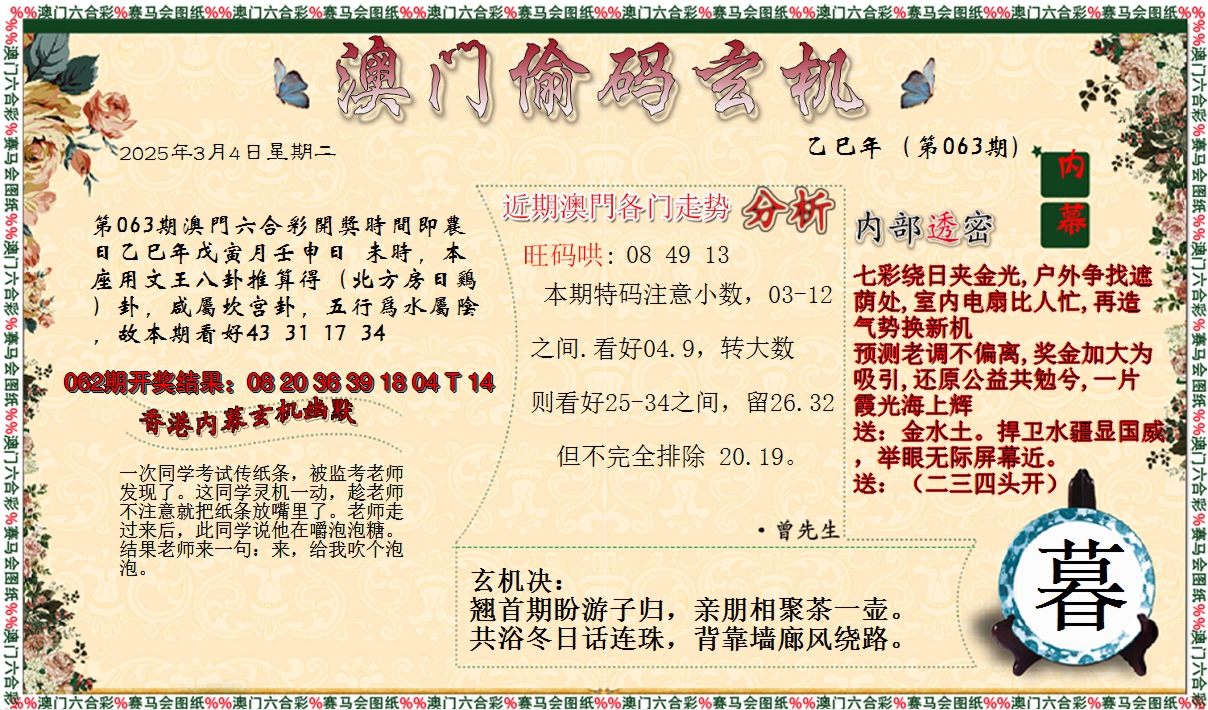 %%澳门六合彩%赛马会图纸%%澳门六合彩%赛马会图纸%%澳门六合彩%赛马会图纸%%澳门六合彩%赛马会图纸%%澳门六合彩%赛马会图纸%%澳门六合彩%赛马会图纸%%澳门六合彩%赛马会图纸%%
澳门偷码玄机
2025年3月4日星期二
乙巳年（第063期）
内
幕
第063期澳門六合彩開獎時間即農
日乙巳年戊寅月壬申日 未時，本
座用文王八卦推算得（北方房日鷄
）卦，咸屬坎宫卦，五行爲水屬陰
，故本期看好43 31 17 34
062期开奖结果：08 20 36 39 18 04 T 14
香港内幕玄机幽默
一次同学考试传纸条，被监考老师
发现了。这同学灵机一动，趁老师
不注意就把纸条放嘴里了。老师走
过来后，此同学说他在嚼泡泡糖。
结果老师来一句：来，给我吹个泡
泡。
近期澳門各门走势 分析
旺码哄: 08 49 13
本期特码注意小数，03-12
之间.看好04.9，转大数
则看好25-34之间，留26.32
但不完全排除 20.19。
·曾先生
内部透密
七彩绕日夹金光,户外争找遮
荫处,室内电扇比人忙,再造
气势换新机
预测老调不偏离,奖金加大为
吸引,还原公益共勉兮,一片
霞光海上辉
送：金水土。捍卫水疆显国威
，举眼无际屏幕近。
送：（二三四头开）
玄机决：
翘首期盼游子归，亲朋相聚茶一壶。
共浴冬日话连珠，背靠墙廊风绕路。
暮
%%澳门六合彩%赛马会图纸%%澳门六合彩%赛马会图纸%%澳门六合彩%赛马会图纸%%澳门六合彩%赛马会图纸%%澳门六合彩%赛马会图纸%%澳门六合彩%赛马会图纸%%澳门六合彩%赛马会图纸%%